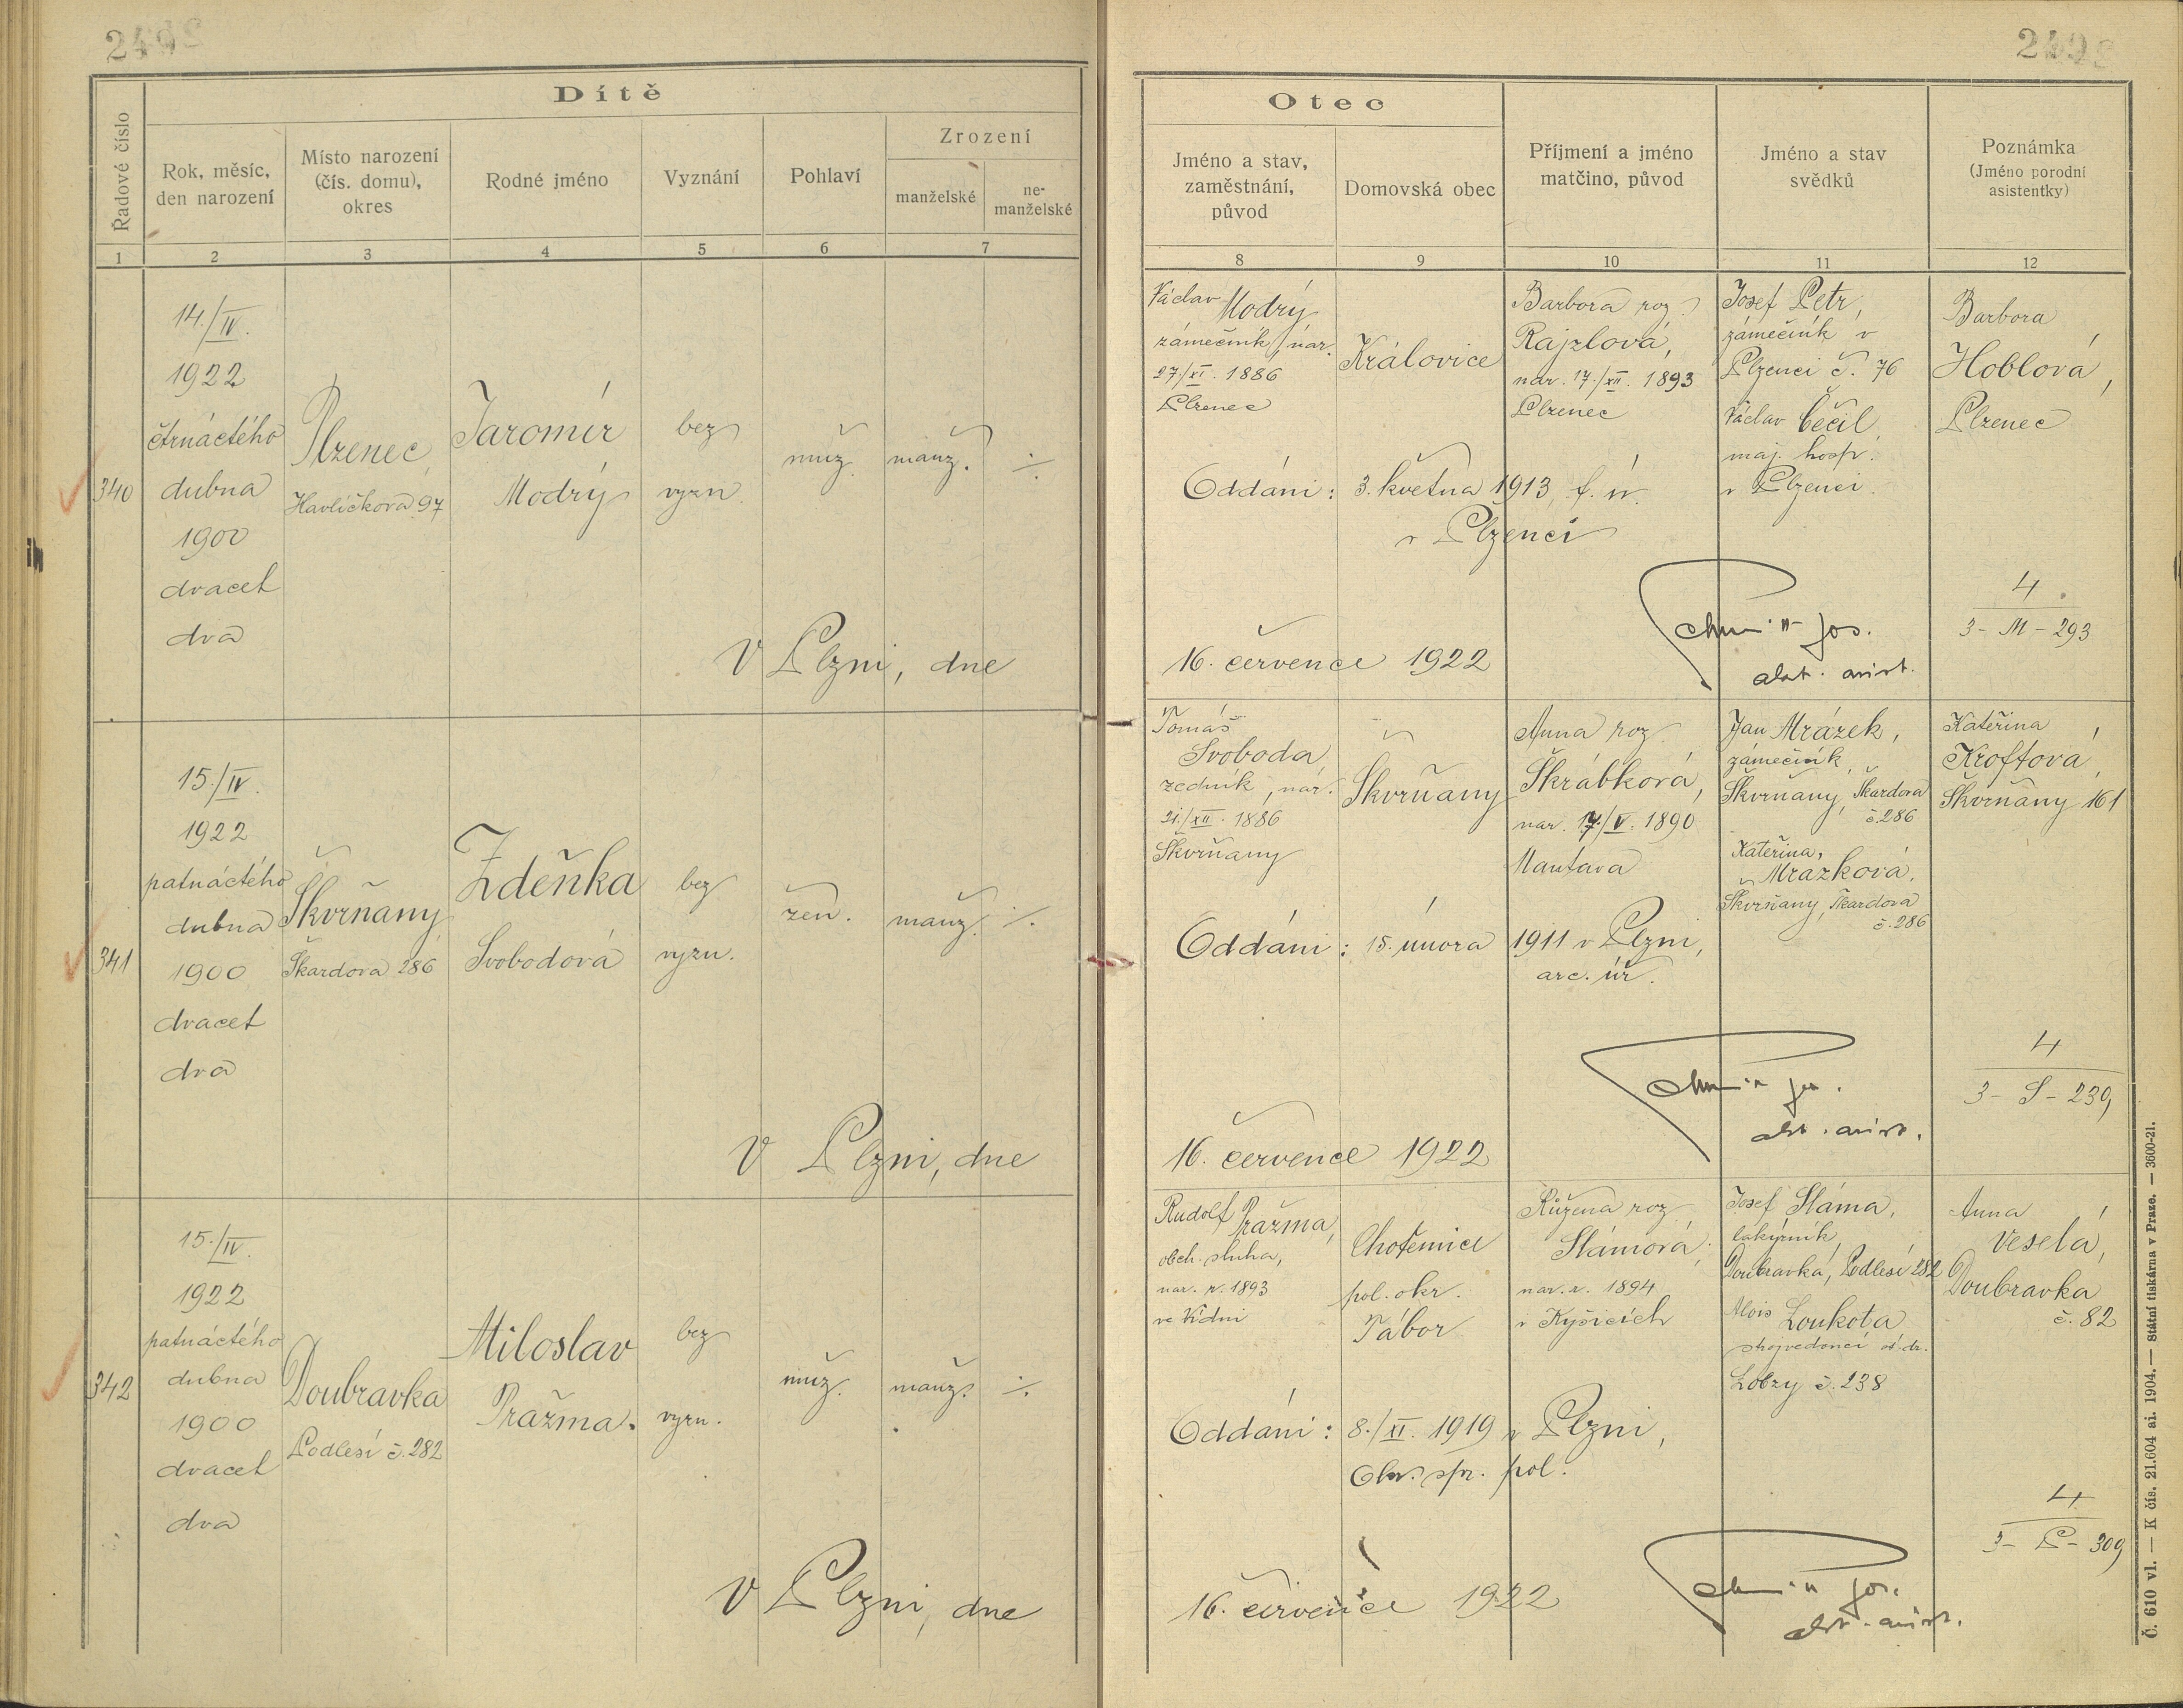 Dítě
Řadové číslo
Rok, měsíc,
den narození
Místo narození
(čís. domu),
okres
Rodné jméno
Vyznání
Pohlaví
Zrození
manželské
ne-
manželské
1 2 3 4 5 6 7
340
14./IV.
1922
čtrnáctého
dubna
1900
dvacet
dva
Plzenec,
Havlíčkova 97
Jaromír
Modrý
bez
vyzn.
muž.
manž.
V Plzni, dne
341
15./IV.
1922
patnáctého
dubna
1900
dvacet
dva
Škvrňany
Škardova 286
Zdeňka
Svobodová
bez
vyzn.
žen.
manž.
V Plzni, dne
342
15./IV.
1922
patnáctého
dubna
1900
dvacet
dva
Doubravka
Podlesí č. 282
Miloslav
Pražma.
bez
vyzn.
muž.
manž.
V Plzni, dne
Otec
Jméno a stav,
zaměstnání,
původ
Domovská obec
Příjmení a jméno
matčino, původ
Jméno a stav
svědků
Poznámka
(Jméno porodní
asistentky)
8 9 10 11 12
Václav Modrý
zámečník, nar.
27./XI. 1886
Plzenec
Kralovice
Barbora roz.
Rajzlová,
nar. 17./XII. 1893
Plzenec
Josef Petr,
zámečník v
Plzenci č. 76
Václav Čečil,
maj. hosp.
v Plzenci.
Barbora
Hoblová,
Plzenec
Oddáni: 3. května 1913, f. úř.
v Plzenci
4
3 - M - 293
16. července 1922
Jos.
Tomáš
Svoboda
zedník, nar.
21./XII. 1886
Škvrňany
Škvrňany
Anna roz.
Škrábková,
nar. 17./V. 1890
Mantava
Jan Mrázek,
zámečník,
Škvrňany, Škardova
č. 286
Kateřina
Mrazková,
Škvrňany, Škardova
č. 286
Kateřina
Kroftová,
Škvrňany 161
Oddáni: 15. února 1911 v Plzni,
arc. úř.
4
3 - S - 239
16. července 1922
Rudolf Pražma,
obch. sluha,
nar. r. 1893
ve Vídni
Chotěmice
pol. okr.
Tábor
Růžena roz.
Slámová,
nar. r. 1894
v Kyšicích
Josef Sláma,
lakýrník,
Doubravka, Podlesí 282
Alois Loukota
strojvedoucí st. dr.
Lobzy č. 238
Anna
Veselá,
Doubravka
č. 82
Oddáni: 8./XI. 1919 v Plzni,
Okr. spr. pol.
4
3 - P - 309
16. července 1922
Jos.
Č. 610 vl. — K čís. 21.604 ai. 1904. — Státní tiskárna v Praze. — 3600-21.